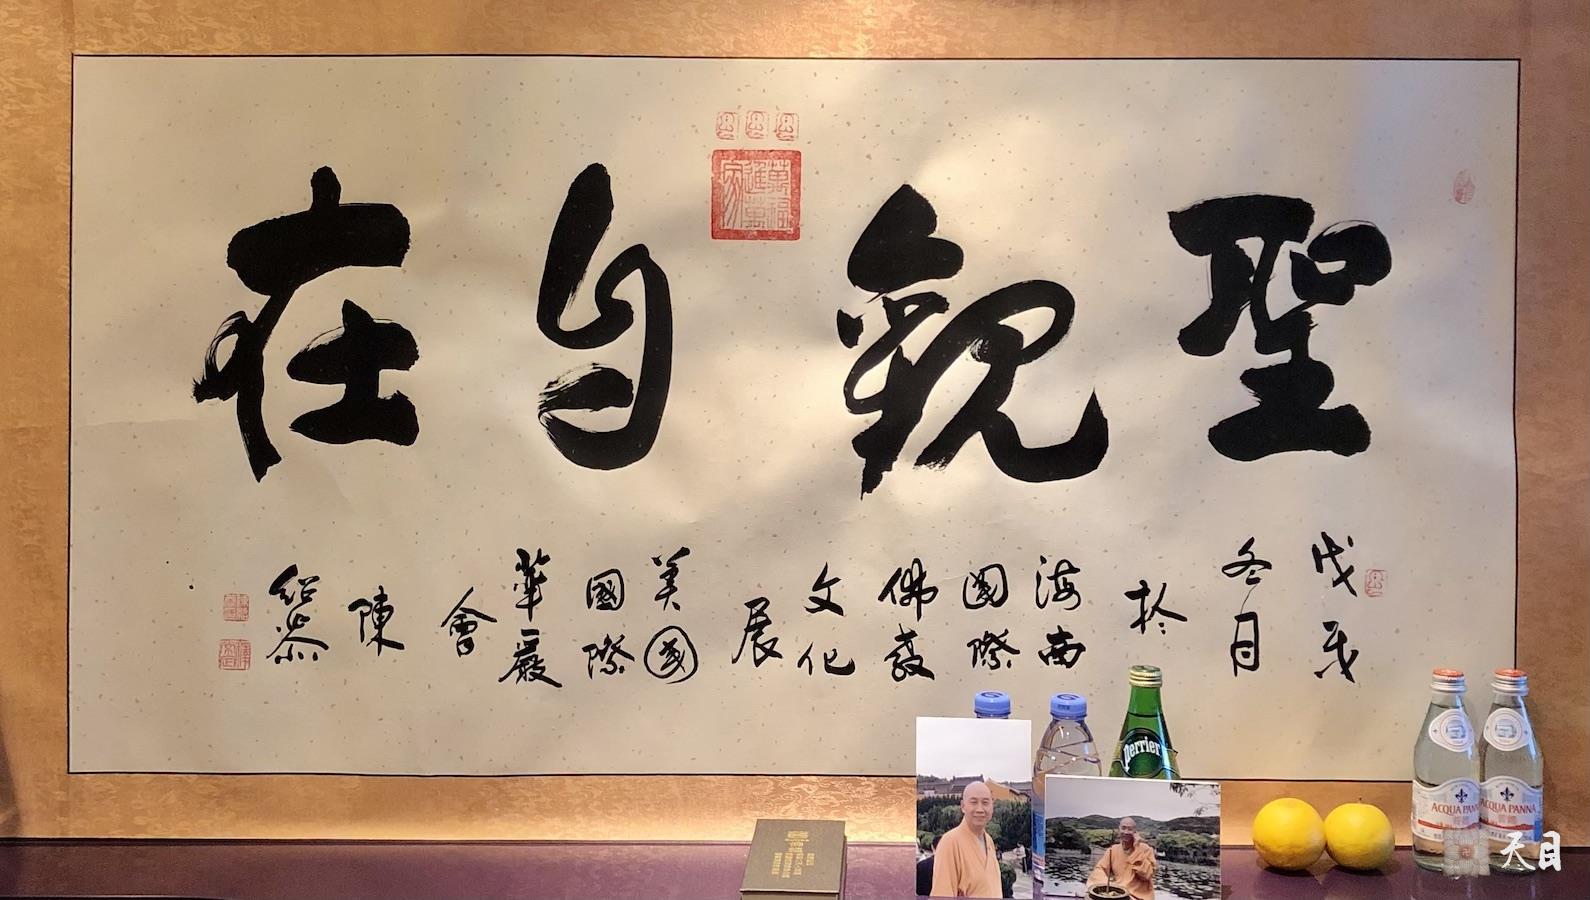 聖觀自在
戊戌
冬月
於
海南
國際
佛教
文化
展
美國
國際
華嚴
會
陳
紹
萬福
進萬
家
perrier
ACQUA PANNA
ACQUA PANNA
天目